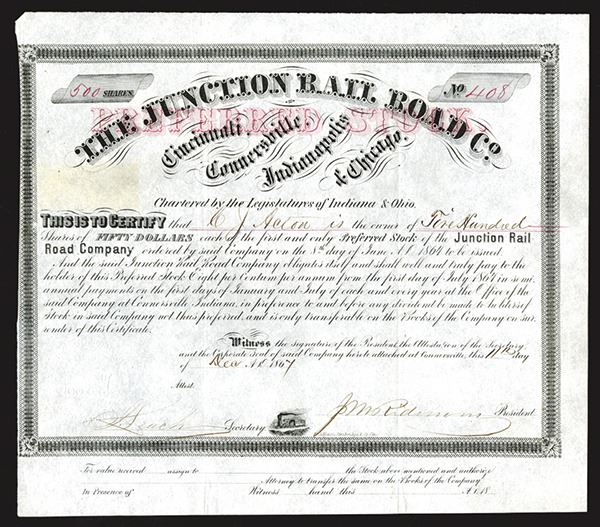 500 SHARES.
No. 408
THE JUNCTION RAIL ROAD Co.
PREFERRED STOCK.
Cincinnati
Connersville
Indianapolis
& Chicago.
Chartered by the Legislatures of Indiana & Ohio.
THIS IS TO CERTIFY that C J Acton is the owner of Five Hundred
Shares of FIFTY DOLLARS each of the first and only Preferred Stock of the Junction Rail
Road Company ordered by said Company on the day of June A.D. 1864 to be issued.
And the said Junction Rail Road Company obligates itself and shall well and truly pay to the
holder of this Preferred Stock Eight per Centum per annum from the first day of July 1867 in semi
annual payments on the first days of January and July of each and every year at the Office of
said Company at Connersville, Indiana, in preference to and before any dividend be made to holders of
Stock in said Company not thus preferred, and is only transferable on the Books of the Company on sur-
render of this Certificate.
Witness the signature of the President, the Attestation of the Secretary
and the Corporate Seal of said Company hereto attached at Connersville, this 11th day
of Dec A.D. 1867
Attest.
Secretary
President
For value received assign to the Stock above mentioned and authorize
Attorney to transfer the same on the Books of the Company
In Presence of Witness hand this A.D. 18